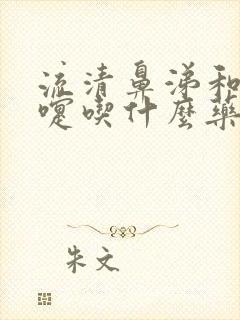 流清鼻涕和
嚏喫什麼藥
朱文